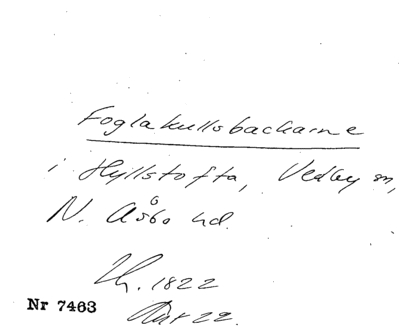 Foglakullsbackarne
i Hyllstofta, Vedby sn,
N. Åsbo hd.
Lh. 1822
Akt 22.
Nr 7463